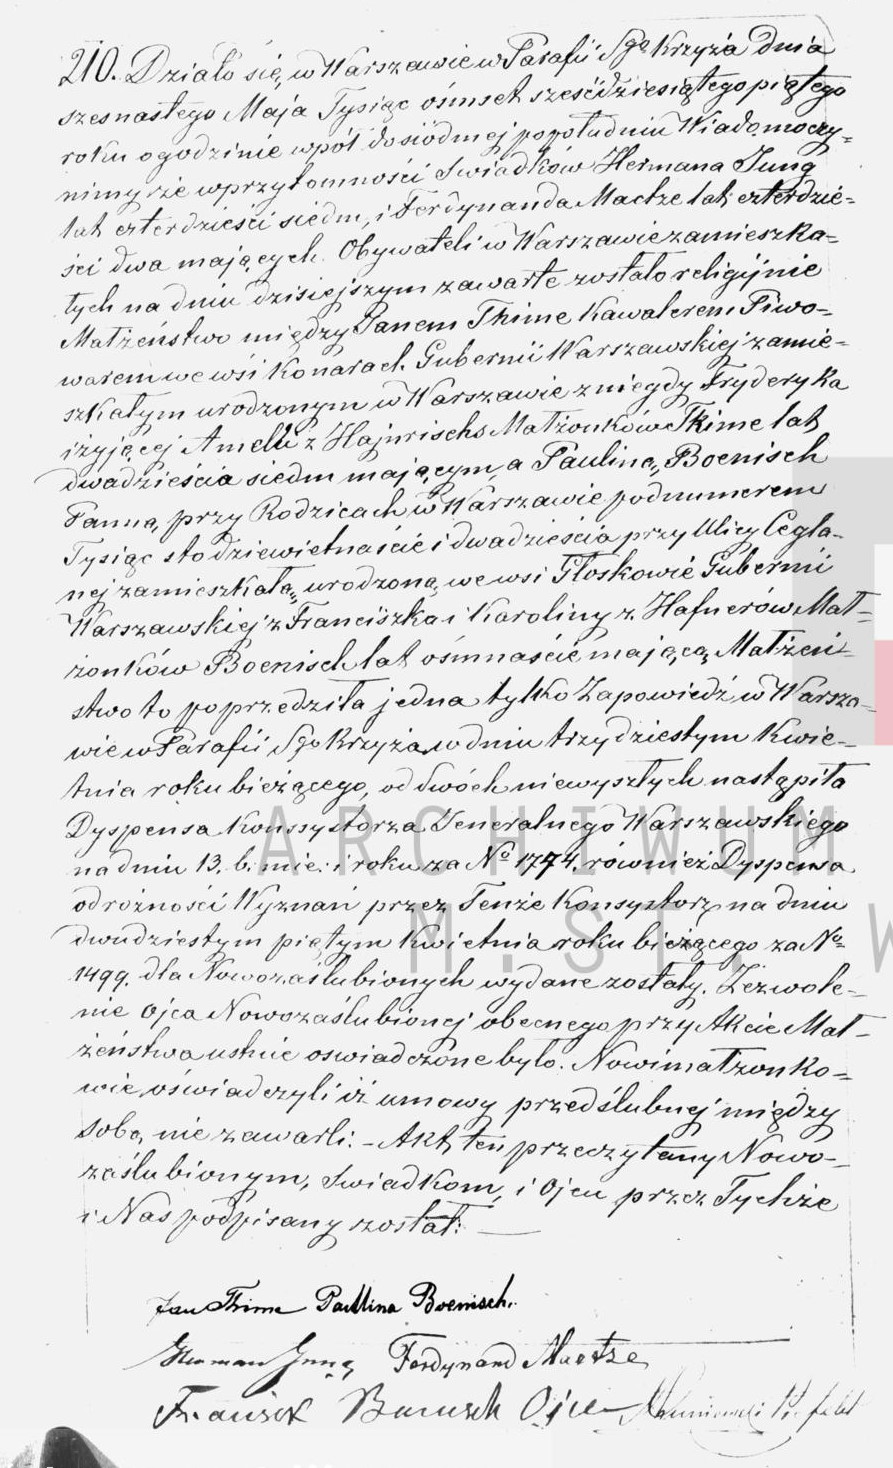 210. Działo się, w Warszawie w Parafii Sgo Krzyża dnia
szesnastego Maja Tysiąc ośmset sześćdziesiątego piątego
roku o godzinie wpół do siódmej popołudniu Wiadomoczy=
nimy że wprzytomności Swiadków Hermana Jung
lat czterdzieści siedm, i Ferdynanda Maetze lat czterdzie=
ści dwa mających. Obywateli w Warszawie zamieszka=
łych na dniu dzisiejszym zawarte zostało religijnie
Małżeństwo między Janem Thime Kawalerem Piwo=
warem we wsi Konarach Gubernii Warszawskiej zamie=
szkałym urodzonym w Warszawie z niegdy Fryderyka
i żyjącej Amelii z Hajnrischs Małżonków Thime lat
dwadzieścia siedm mającym, a Pauliną Boenisch
Panną, przy Rodzicach w Warszawie pod numerem
Tysiąc sto dziewietnaście i dwadzieścia przy Ulicy Cegla=
nej zamieszkałą, urodzoną we wsi Głoskowie Gubernii
Warszawskiej z Franciszka i Karoliny z Hafnerów Mał=
żonków Boenisch lat ośmnaście mającą, Małżeń=
stwo to poprzedziła jedna tylko Zapowiedź w Warsza=
wie w Parafii Sgo Krzyża w dniu trzydziestym Kwie=
tnia roku bieżącego, od dwóch niewyszłych nastąpiła
Dyspensa Konssystorza Jeneralnego Warszawskiego
na dniu 13. b. mie: i roku za No 1774. również Dyspensa
od różności Wyznań przez Tenże Konsystorz na dniu
dwudziestym piętym Kwietnia roku bieżącego za No
1499. dla Nowozaślubionych wydane zostały. Zezwole=
nie Ojca Nowozaślubionej obecnego przy Akcie Mał=
żeństwa ustnie oswiadczone było. Nowi małżonko=
wie oświadczyli iż umowy przedślubnej między
sobą nie zawarli. - Akt ten przeczytany Nowo=
zaślubionym, Swiadkom, i Ojcu przez Tychże
i Nas podpisany został:
Jan Thime Paulina Boenisch.
Herman Jung Ferdynand Maetze
Boenisch Ojciec
ARCHIWUM
M.ST. W